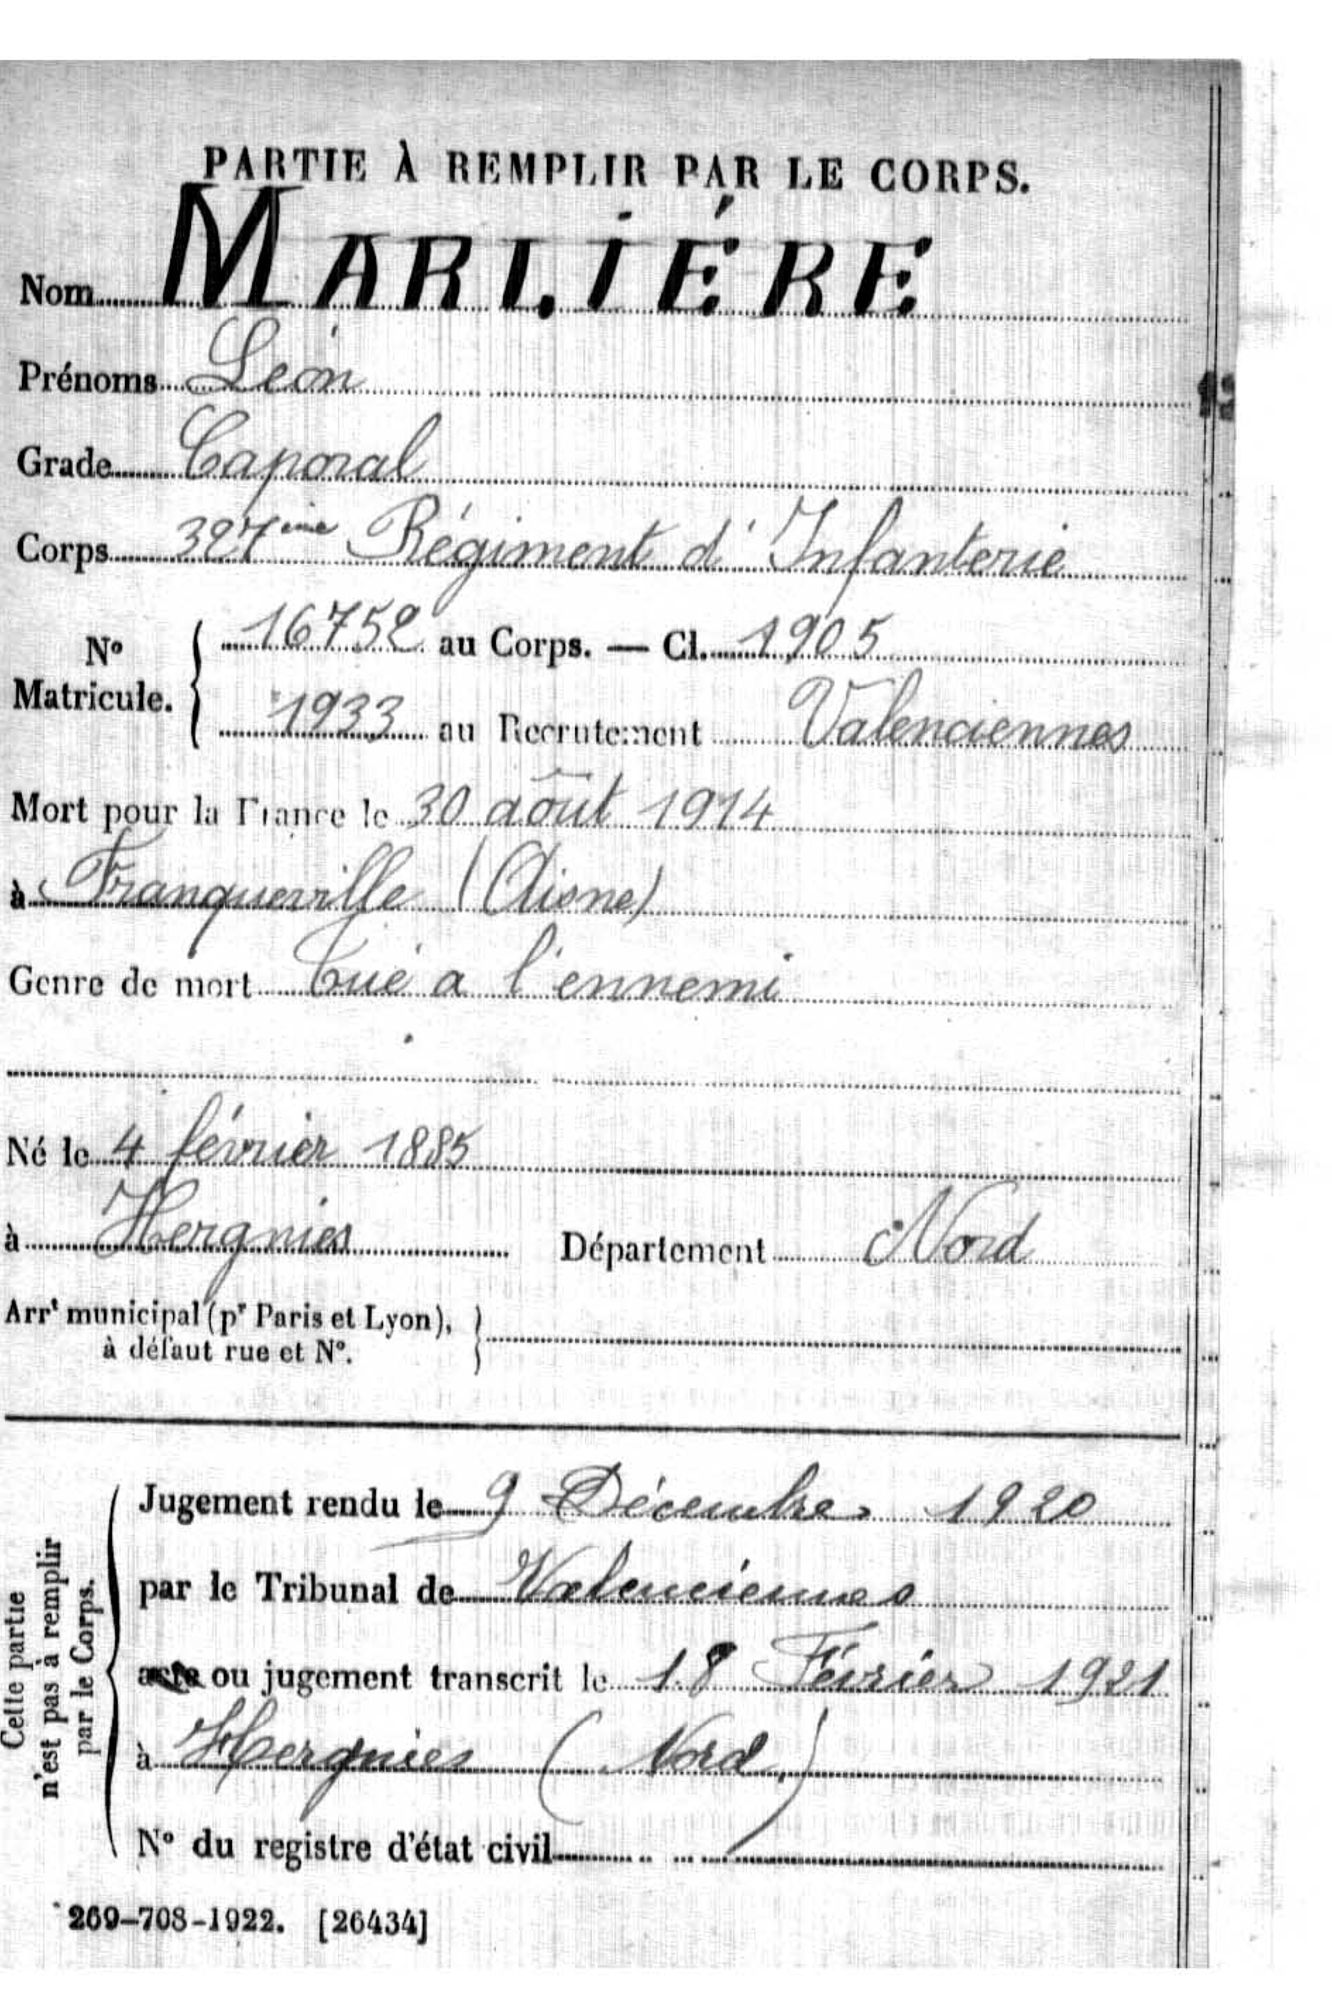 PARTIE À REMPLIR PAR LE CORPS.
Nom MARLIÉRE
Prénoms Léon
Grade Caporal
Corps 327ème Régiment d'Infanterie
N° Matricule. { 16752 au Corps. — Cl. 1905
1933 au Recrutement Valenciennes
Mort pour la France le 30 août 1914
à Franqueville (Aisne)
Genre de mort tué a l'ennemi
Né le 4 février 1885
à Hergnies Département Nord
Arrt municipal (pr Paris et Lyon),
à défaut rue et N°.
Cette partie
n'est pas à remplir
par le Corps.
Jugement rendu le 9 Décembre 1920
par le Tribunal de Valenciennes
acte ou jugement transcrit le 18 Février 1921
à Hergnies (Nord)
N° du registre d'état civil
269-708-1922. [26434]